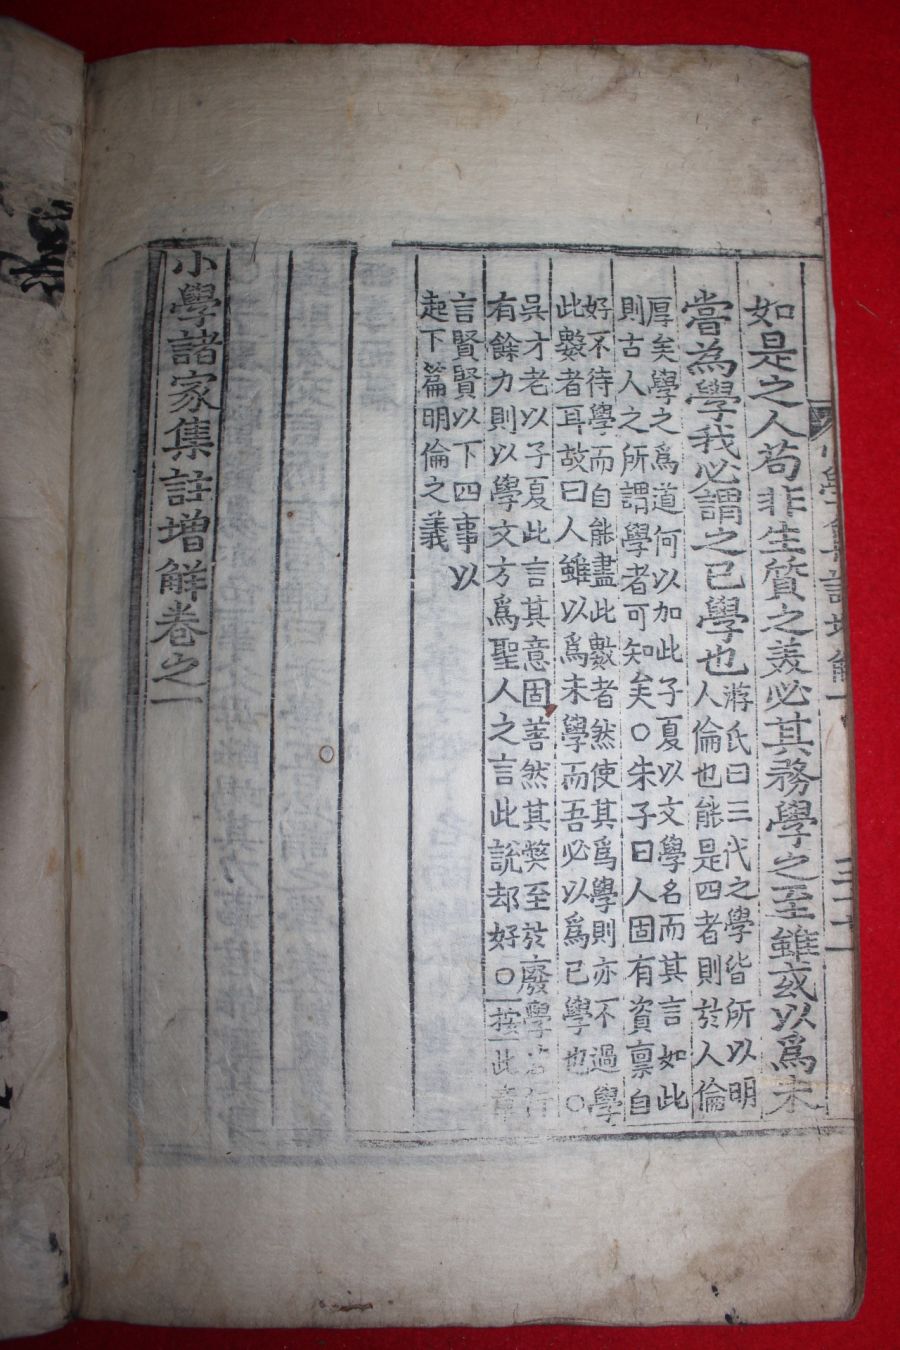 如是之人苟非生質之羙必其務學之至雖或以爲未
嘗為學我必謂之已學也
游氏曰三代之學皆所以明
人倫也能是四者則於人倫
厚矣學之爲道何以加此子夏以文學名而其言如此
則古人之所謂學者可知矣○朱子曰人固有資禀自
好不待學而自能盡此數者然使其爲學則亦不過學
此數者耳故曰人雖以爲未學而吾必以爲已學也○
吳才老以子夏此言其意固善然其獘至於廢學若行
有餘力則以學文方爲聖人之言此說却好○按此章
言賢賢以下四事以
起下篇明倫之義
小學諸家集註增解卷之一